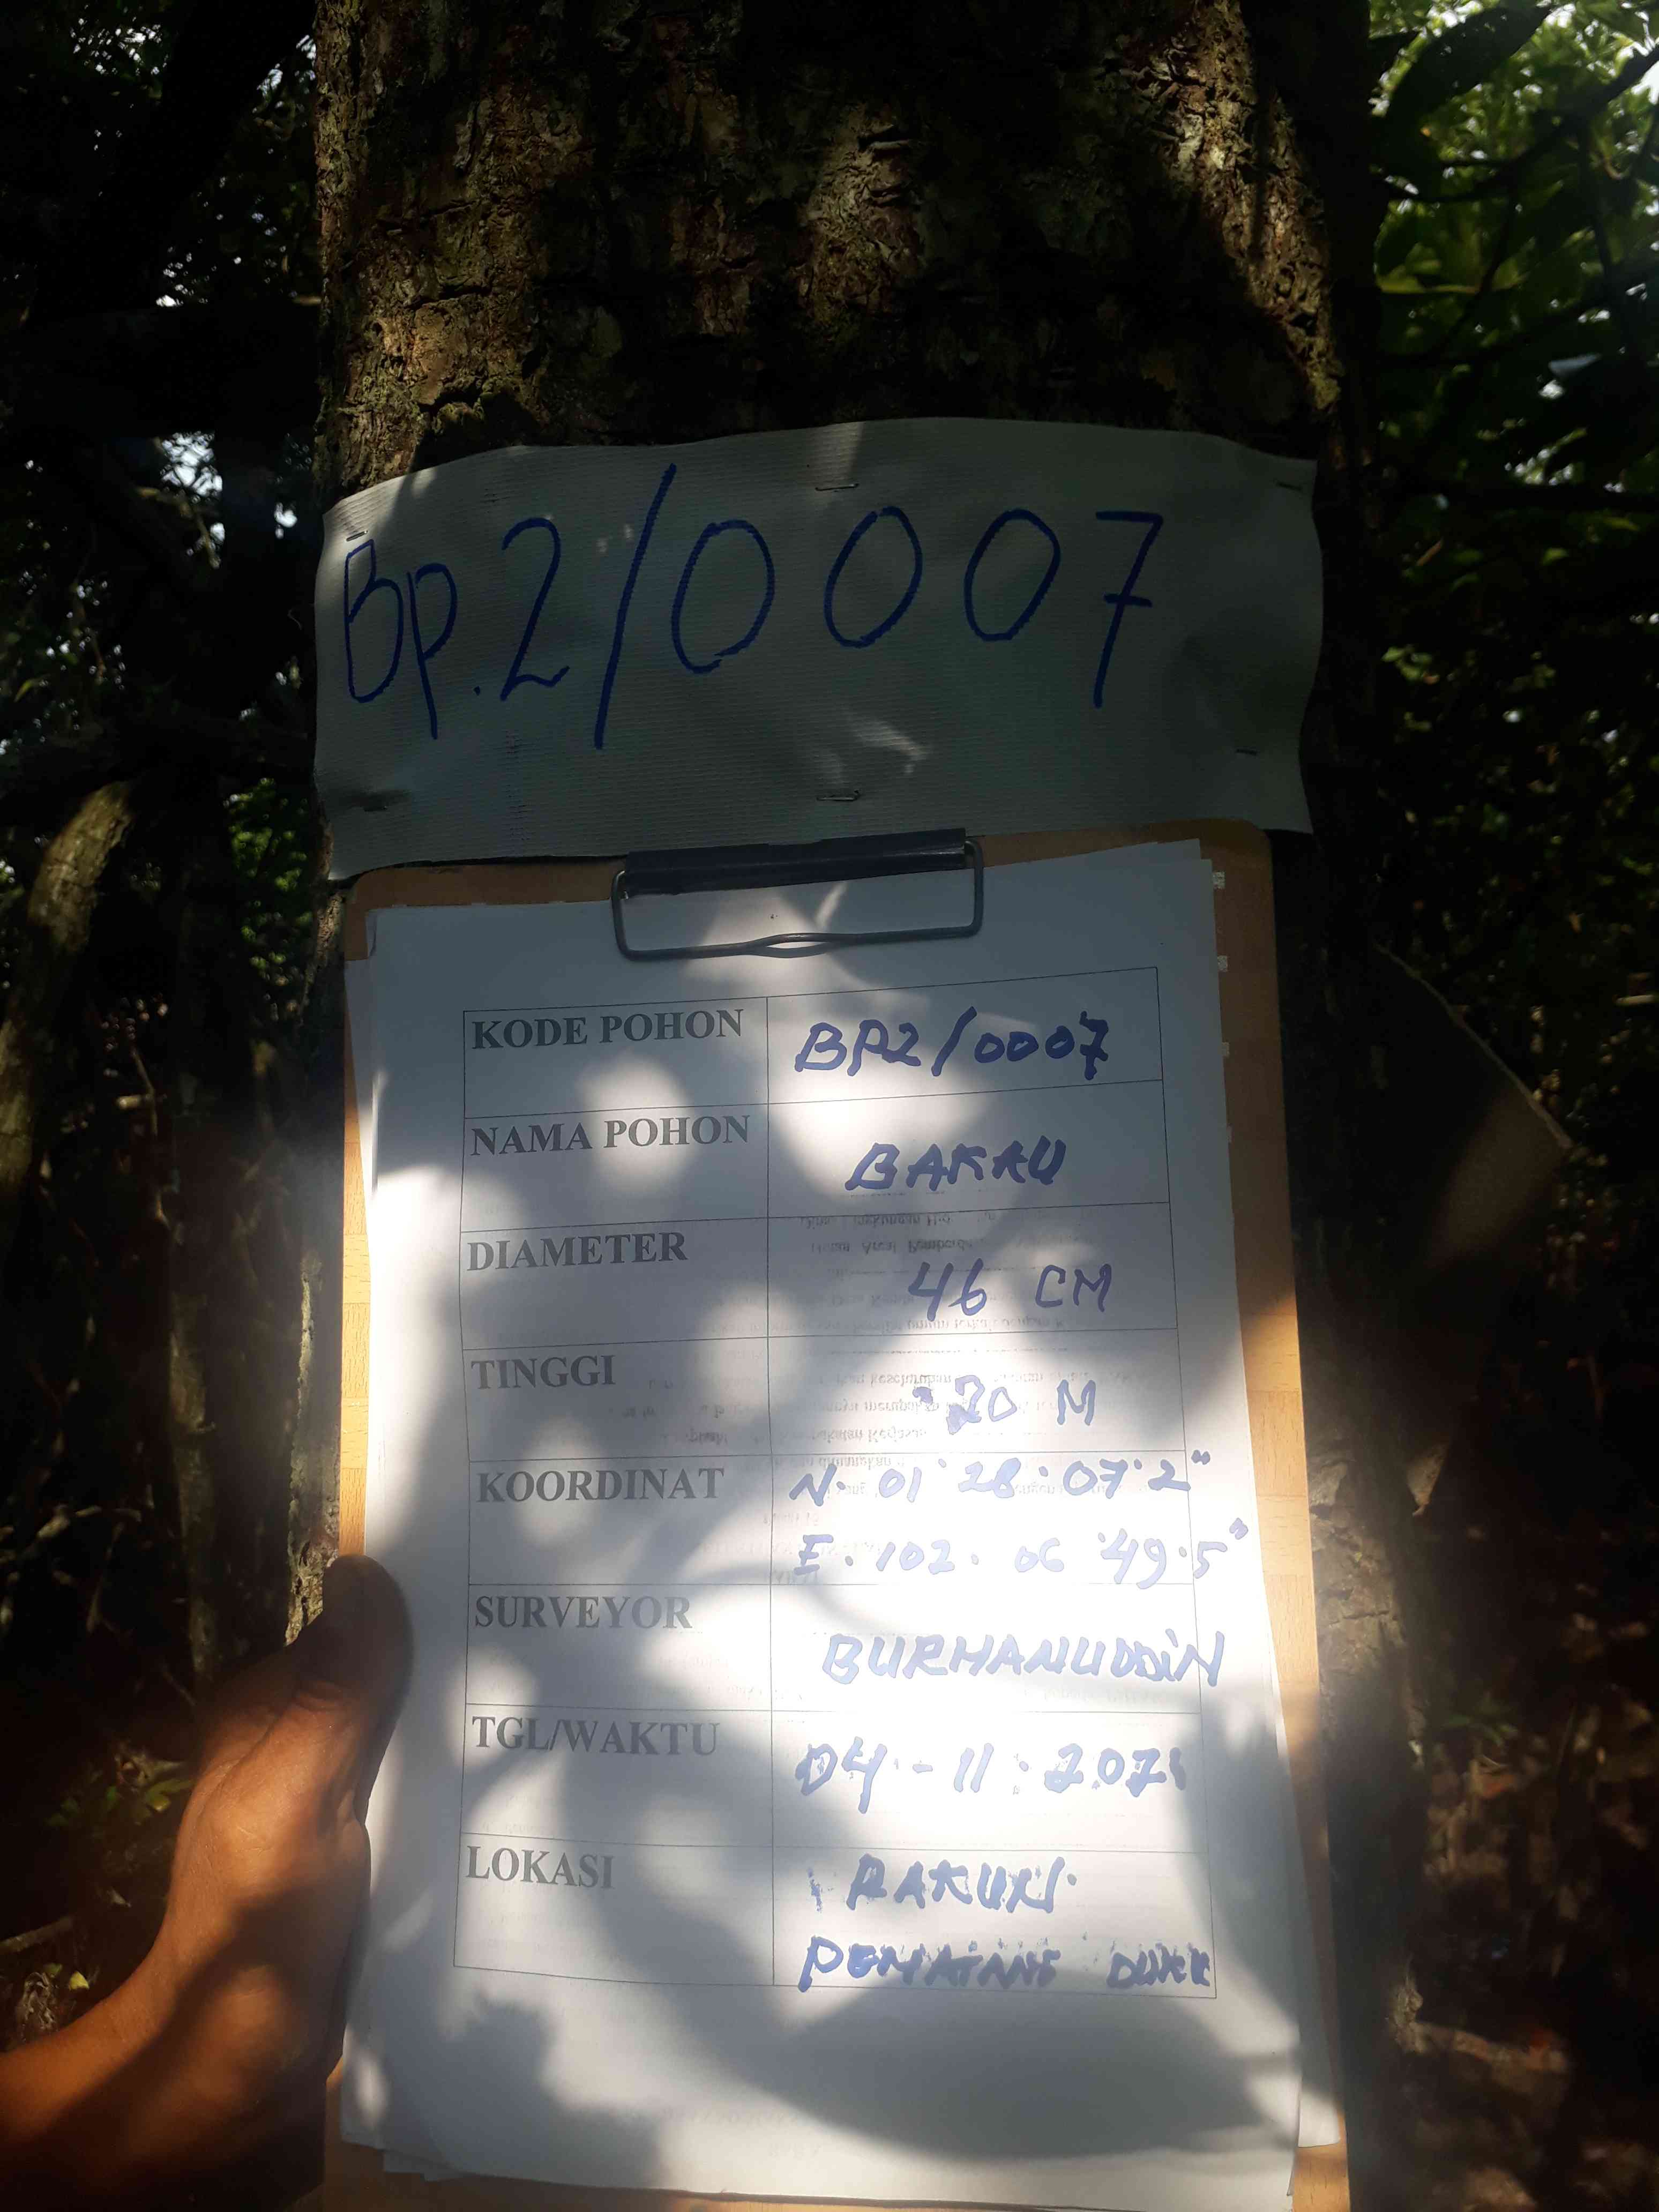 Bp.2/0007
KODE POHON BP2/0007
NAMA POHON BAKAU
DIAMETER 46 CM
TINGGI 20 M
KOORDINAT N. 01° 28' 07.2"
E. 102. 06 '49.5"
SURVEYOR BURHANUDDIN
TGL/WAKTU 04-11-2021
LOKASI
PEMATANG DUKU